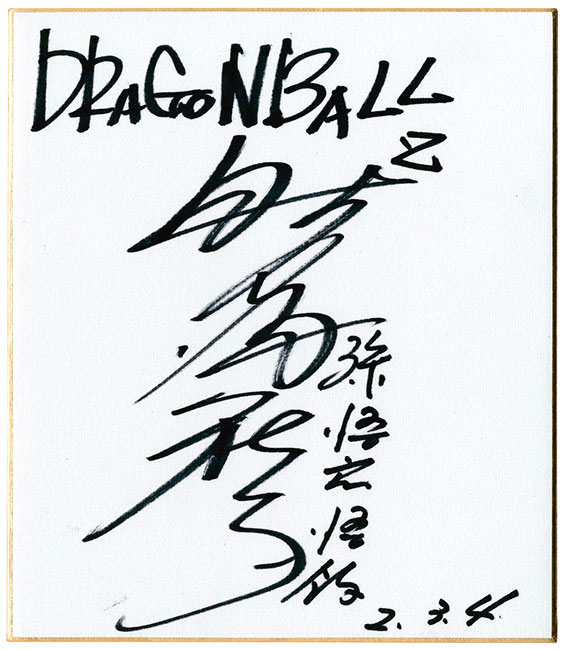 DRAGONBALL
Z
野沢雅子
孫悟空悟飯
2. 3. 4.